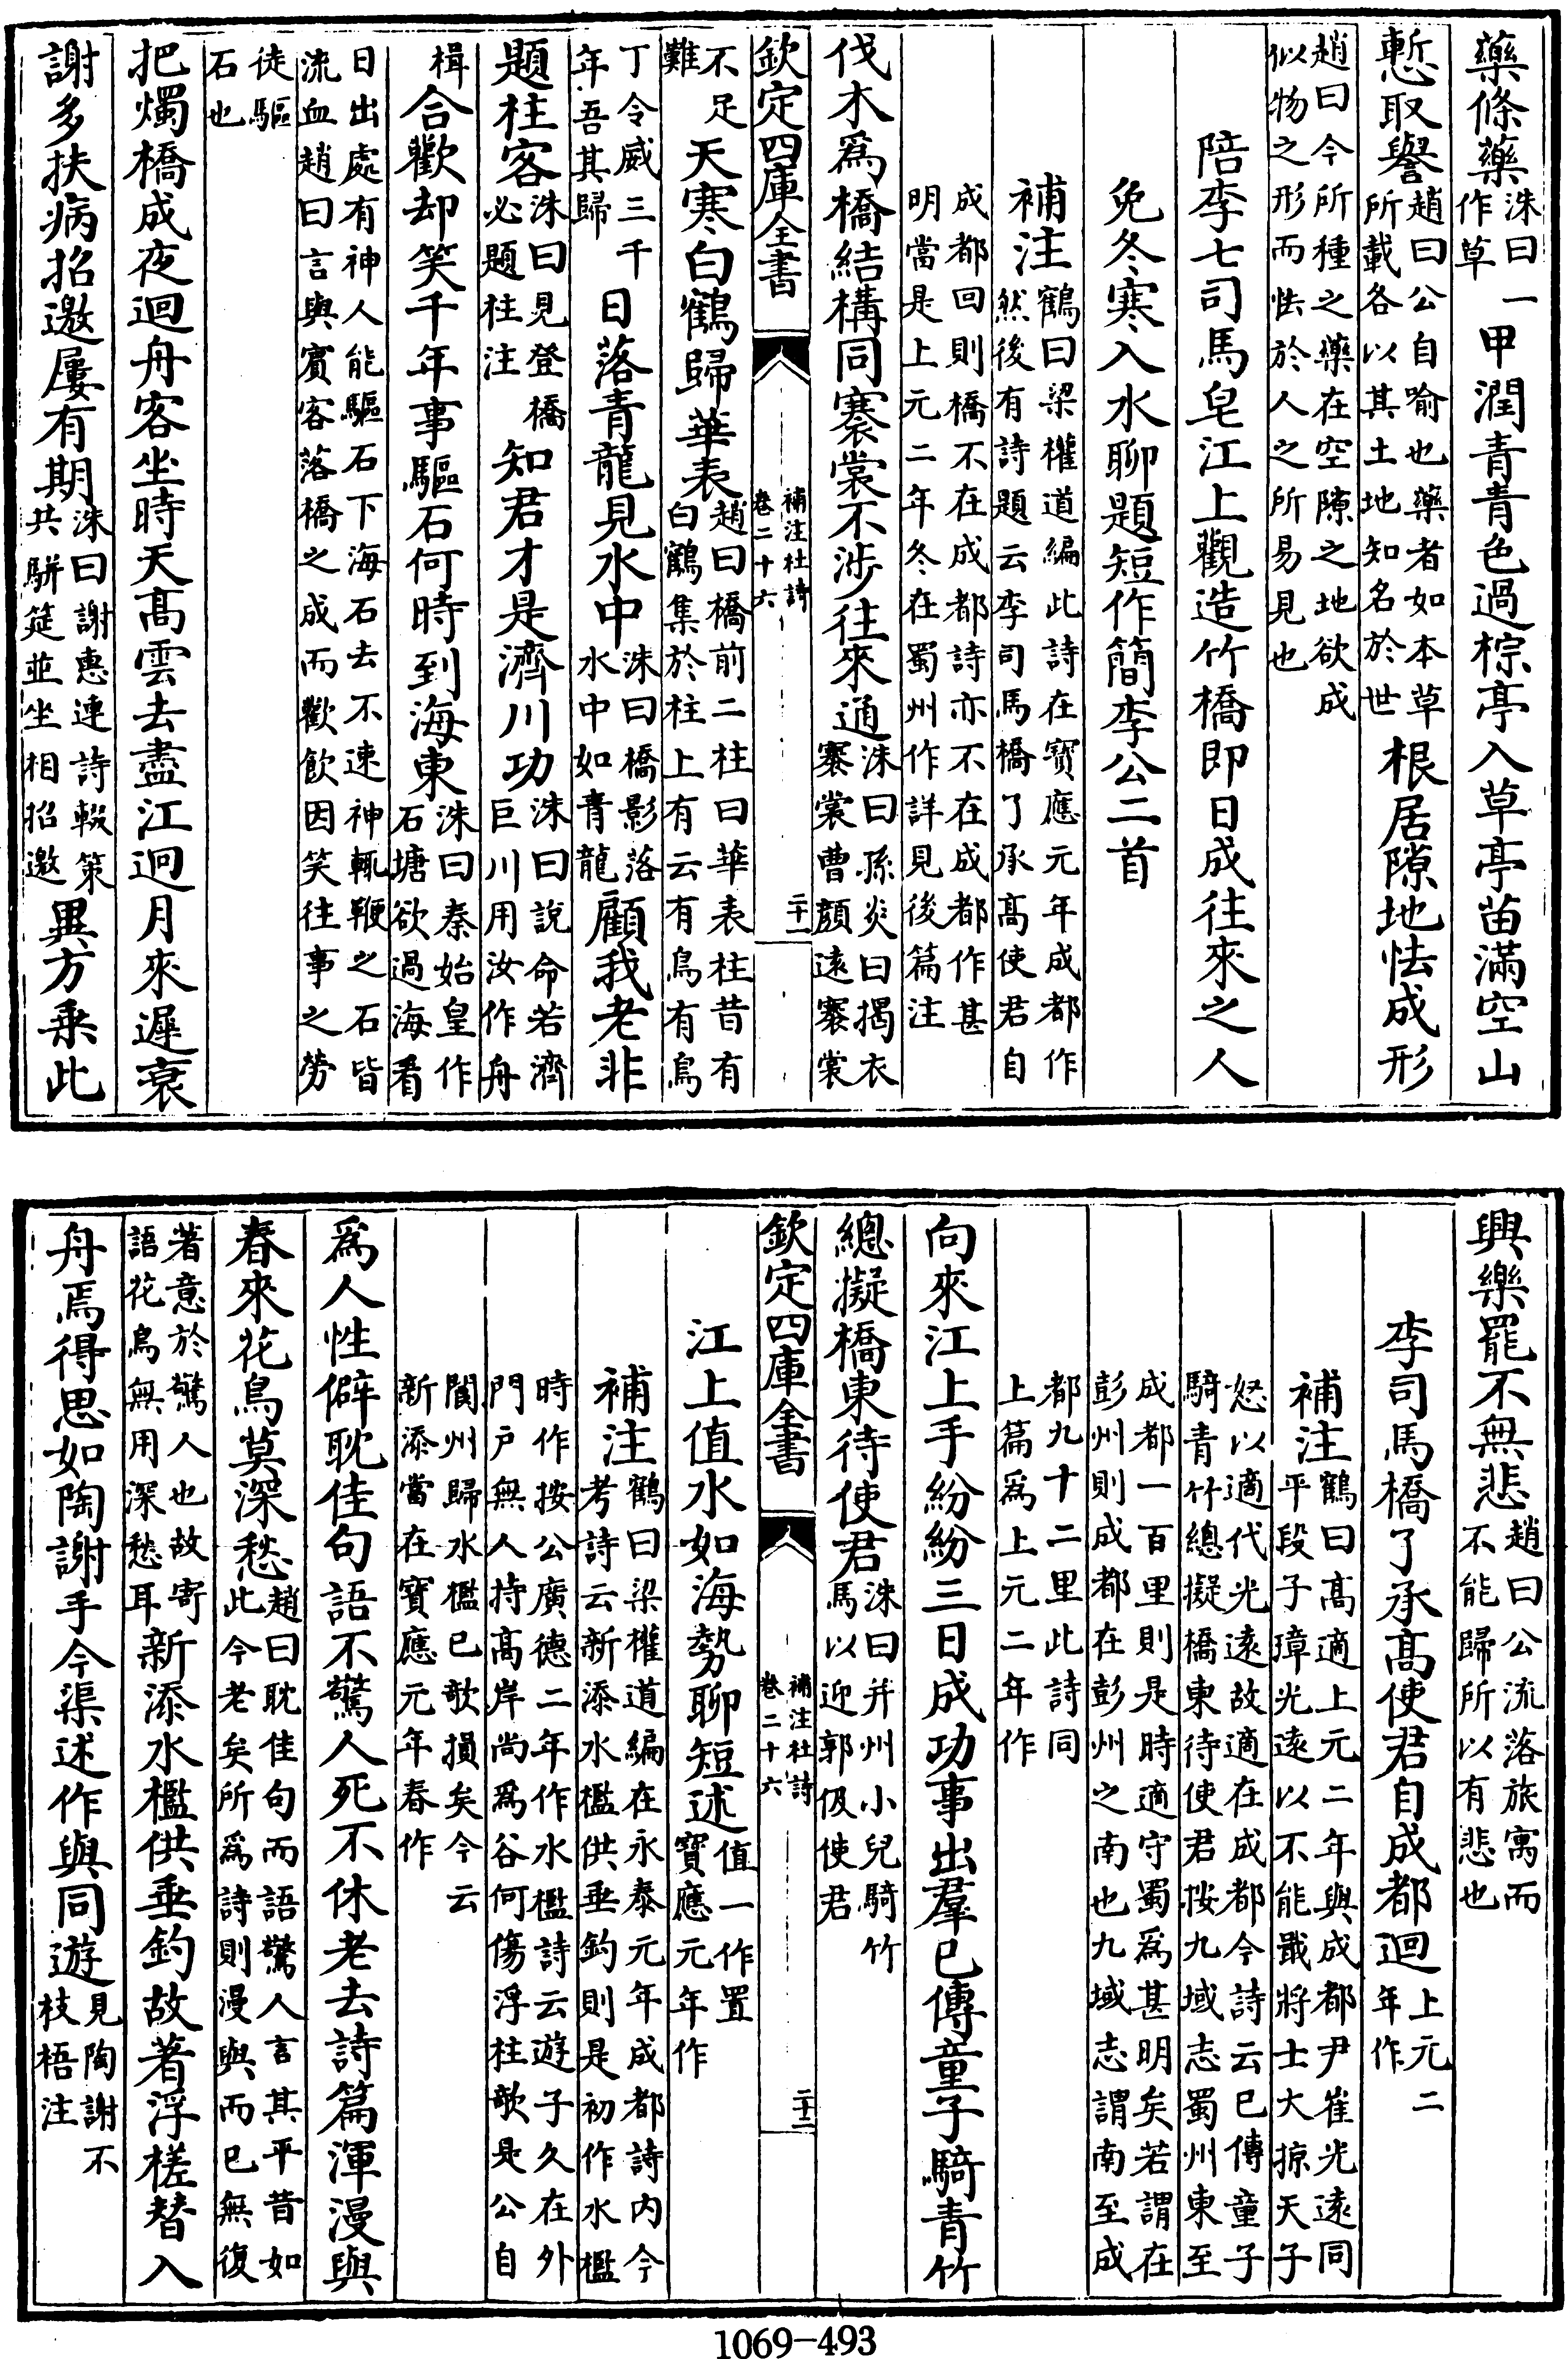 藥條藥洙曰一作草甲潤青青色過棕亭入草亭苗滿空山
慙取譽趙曰公自喻也藥者如本草所載各以其土地知名於世根居隙地怯成形
趙曰今所種之藥在空隙之地欲成似物之形而怯於人之所易見也
陪李七司馬皂江上觀造竹橋即日成往來之人
免冬寒入水聊題短作簡李公二首
補注鶴曰梁權道編此詩在寶應元年成都作然後有詩題云李司馬橋了承高使君自
成都回則橋不在成都詩亦不在成都作甚明當是上元二年冬在蜀州作詳見後篇注
伐木爲橋結構同褰裳不涉往來通洙曰孫炎曰揭衣褰裳曹顏遠褰裳
欽定四庫全書 補注杜詩卷二十六 二十一
不足難天寒白鶴歸華表趙曰橋前二柱曰華表柱昔有白鶴集於柱上有云有鳥有鳥
丁令威三千年吾其歸日落青龍見水中洙曰橋影落水中如青龍顧我老非
題柱客洙曰見登橋必題柱注知君才是濟川功洙曰說命若濟巨川用汝作舟
楫合歡却笑千年事驅石何時到海東洙曰秦始皇作石塘欲過海看
日出處有神人能驅石下海石去不速神輒鞭之石皆流血趙曰言與賓客落橋之成而歡飲因笑往事之勞
徒驅石也
把燭橋成夜迴舟客坐時天高雲去盡江迥月來遲衰
謝多扶病招邀屢有期洙曰謝惠連詩輟策共駢筵並坐相招邀異方乘此
興樂罷不無悲趙曰公流落旅寓而不能歸所以有悲也
李司馬橋了承高使君自成都迴上元二年作
補注鶴曰高適上元二年與成都尹崔光遠同平段子璋光遠以不能戢將士大掠天子
怒以適代光遠故適在成都今詩云已傳童子騎青竹總擬橋東待使君按九域志蜀州東至
成都一百里則是時適守蜀爲甚明矣若謂在彭州則成都在彭州之南也九域志謂南至成
都九十二里此詩同上篇爲上元二年作
向來江上手紛紛三日成功事出羣已傳童子騎青竹
總擬橋東待使君洙曰并州小兒騎竹馬以迎郭伋使君
欽定四庫全書 補注杜詩卷二十六 二十二
江上值水如海勢聊短述值一作置寶應元年作
補注鶴曰梁權道編在永泰元年成都詩內今考詩云新添水檻供垂釣則是初作水檻
時作按公廣德二年作水檻詩云遊子久在外門戶無人持高岸尚爲谷何傷浮柱欹是公自
閬州歸水檻已欹損矣今云新添當在寶應元年春作
爲人性僻耽佳句語不驚人死不休老去詩篇渾漫與
春來花鳥莫深愁趙曰耽佳句而語驚人言其平昔如此今老矣所爲詩則漫與而已無復
著意於驚人也故寄語花鳥無用深愁耳新添水檻供垂釣故著浮槎替入
舟焉得思如陶謝手令渠述作與同遊見陶謝不枝梧注
1069-493